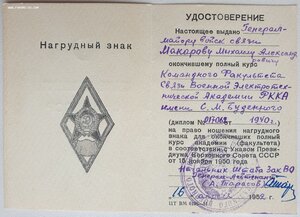 Нагрудный знак
УДОСТОВЕРЕНИЕ
Настоящее выдано Генерал-
майору Войск связи
Макарову Михаилу Александ
ровичу
окончившему полный курс
Командного Факультета
Связи Военной Электротех-
нической Академии РККА
имени С. М. Буденного
(диплом 1940 г.)
на право ношения нагрудного
знака для окончивших полный
курс академии (факультета)
в соответствии с Указом Прези-
диума Верховного Совета СССР
от 15 ноября 1950 года
Начальник Штаба ЗакВО
генерал-лейтенант
Тарасов
16 1952 г.